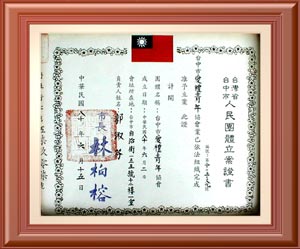 台灣省
台中市
人民團體立案證書
台中市愛體青年協會業已依法組織完成
准予立案 此證
計開
團體名稱：台中市愛體青年協會
成立日期：中華民國八十年六月二日
會址所在地：台中市自治街一五五號十樓一室
負責人姓名：郭淑妤
市長 林柏榕
中華民國八十年六月十五日